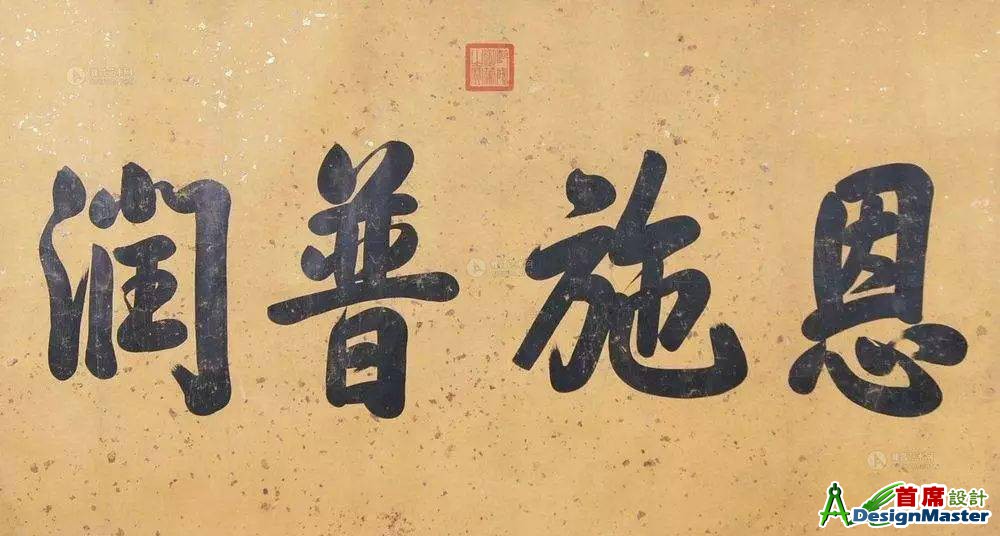 恩施普潤
首席設計
DesignMaster